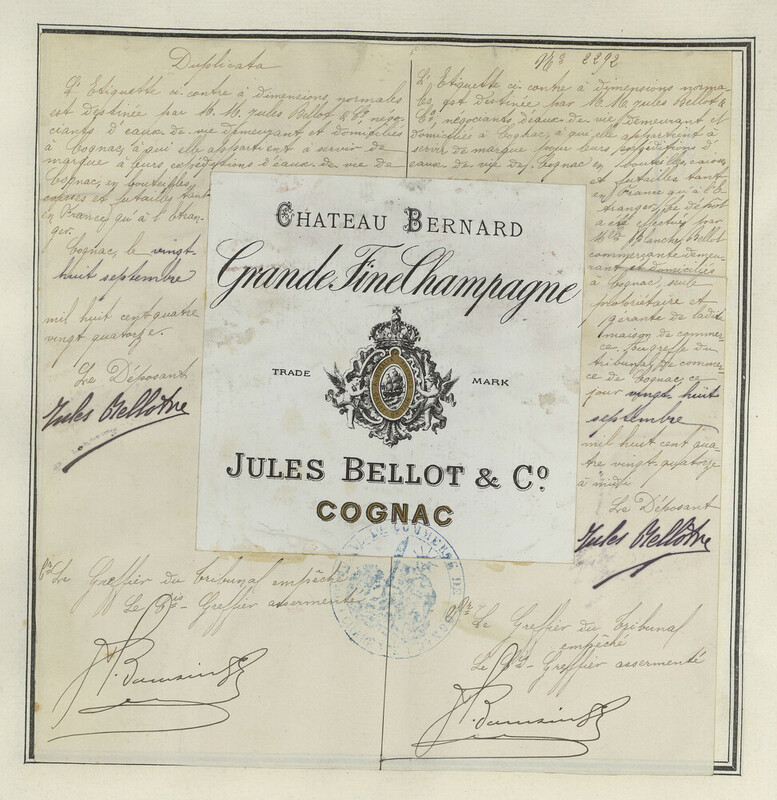 Duplicata
L'Etiquette ci contre à dimensions normales
est destinée par M.M. Jules Bellot & Cº négo-
ciants d'eaux-de-vie demeurant et domiciliés
à Cognac, à qui elle appartient à servir de
marque à leurs expéditions d'eaux de vie de
Cognac, en bouteilles
caisses et futailles tant
en France qu'à l'étran-
ger.
Cognac, le vingt
huit septembre
mil huit cent quatre
vingt quatorze.
Le Déposant
Jules Bellot
Le Greffier du Tribunal empêché
Le Cis-Greffier assermenté
Nº 2292
L'Etiquette ci contre à dimensions norma-
les, est destinée par M.M. Jules Bellot &
Cº, négociants d'eaux de vie, demeurant et
domiciliés à Cognac, à qui elle appartient à
servir de marque pour leurs expéditions d'
eaux de vie de Cognac en bouteilles, caisses
et futailles tant
en France qu'à l'é-
tranger. Le dépôt
a été effectué par
Blanche Bellot
commerçante demeu-
rant et domiciliée
à Cognac, seule
propriétaire et
gérante de ladite
maison de commer-
ce, au greffe du
tribunal de commer-
ce de Cognac, ce
jour vingt huit
septembre
mil huit cent qua-
tre vingt quatorze
à midi
Le Déposant
Jules Bellot
Le Greffier du Tribunal
empêché
Le Cis-Greffier assermenté
CHATEAU BERNARD
Grande Fine Champagne
TRADE MARK
JULES BELLOT & Cº
COGNAC
COMMERCE DE